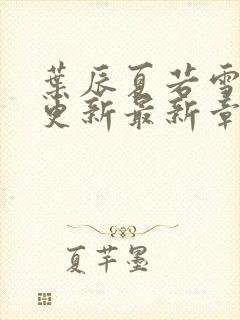 葉辰夏若雪
更新最新章
夏芊墨